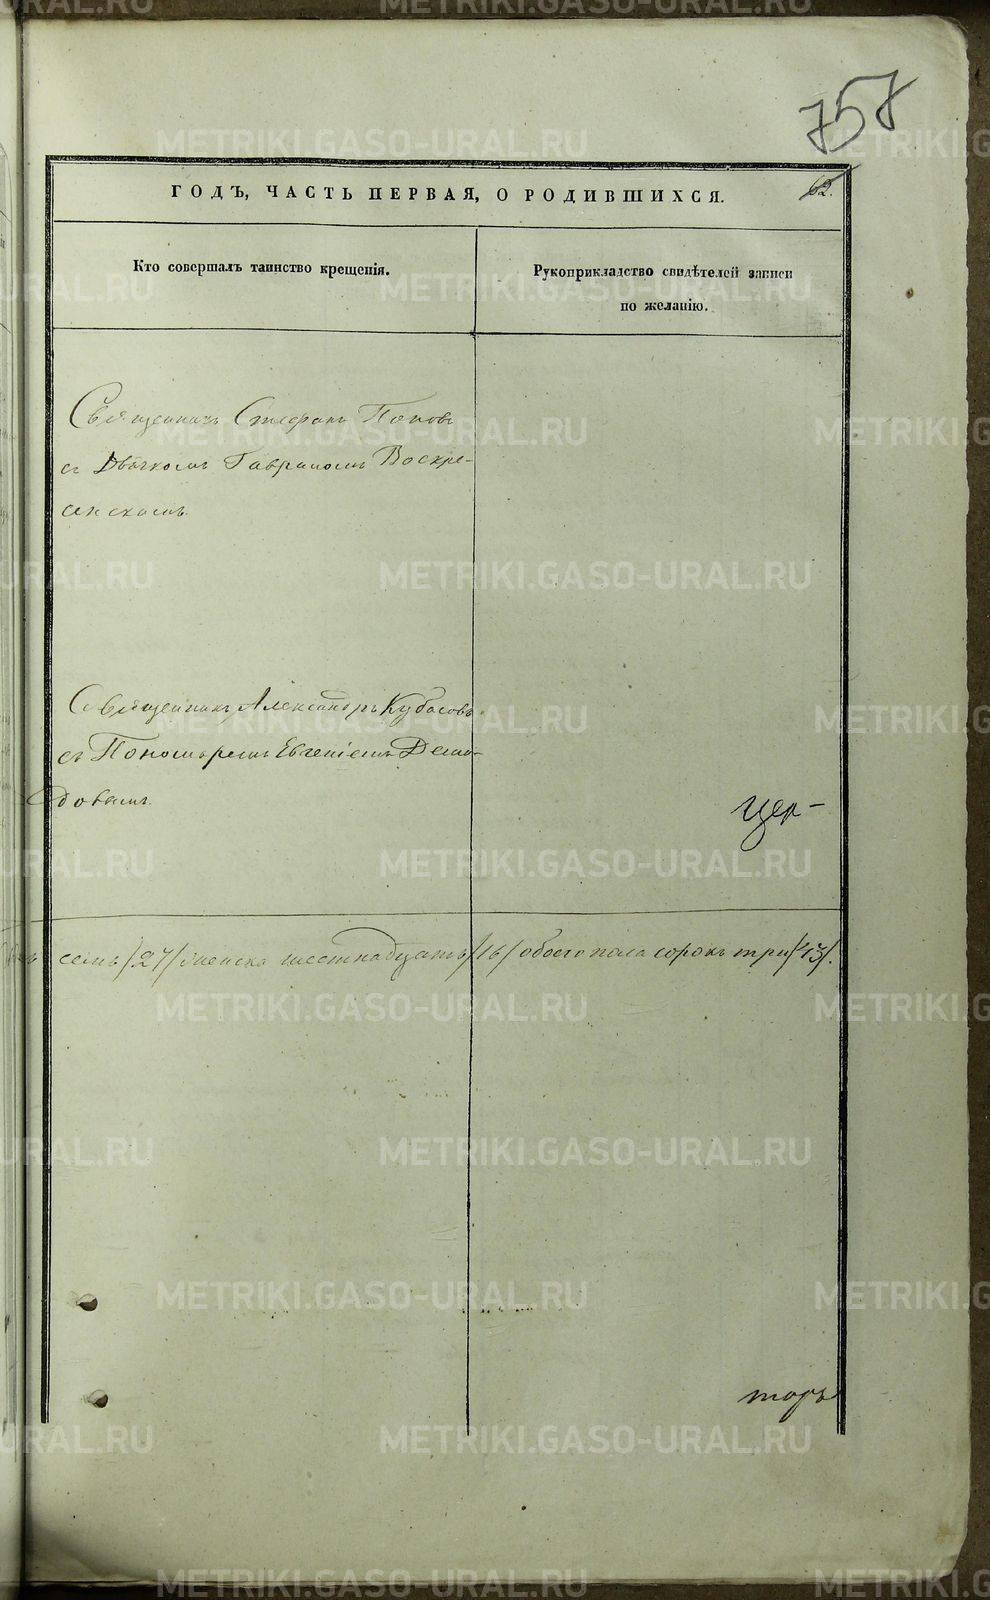 757
ГОДЪ, ЧАСТЬ ПЕРВАЯ, О РОДИВШИХСЯ. 62.
Кто совершалъ таинство крещенія.
Рукоприкладство свидѣтелей записи
по желанію.
Священникъ Стефанъ Поповъ
съ Дьячкомъ Гавриломъ Воскре-
сенскимъ.
Священникъ Александръ Кубасовъ
съ Пономаремъ Евгеніемъ Деми-
довымъ.
цер-
семь /27/ женска шестнадцать /16/ обоего пола сорокъ три /43/.
торъ
METRIKI.GASO-URAL.RU